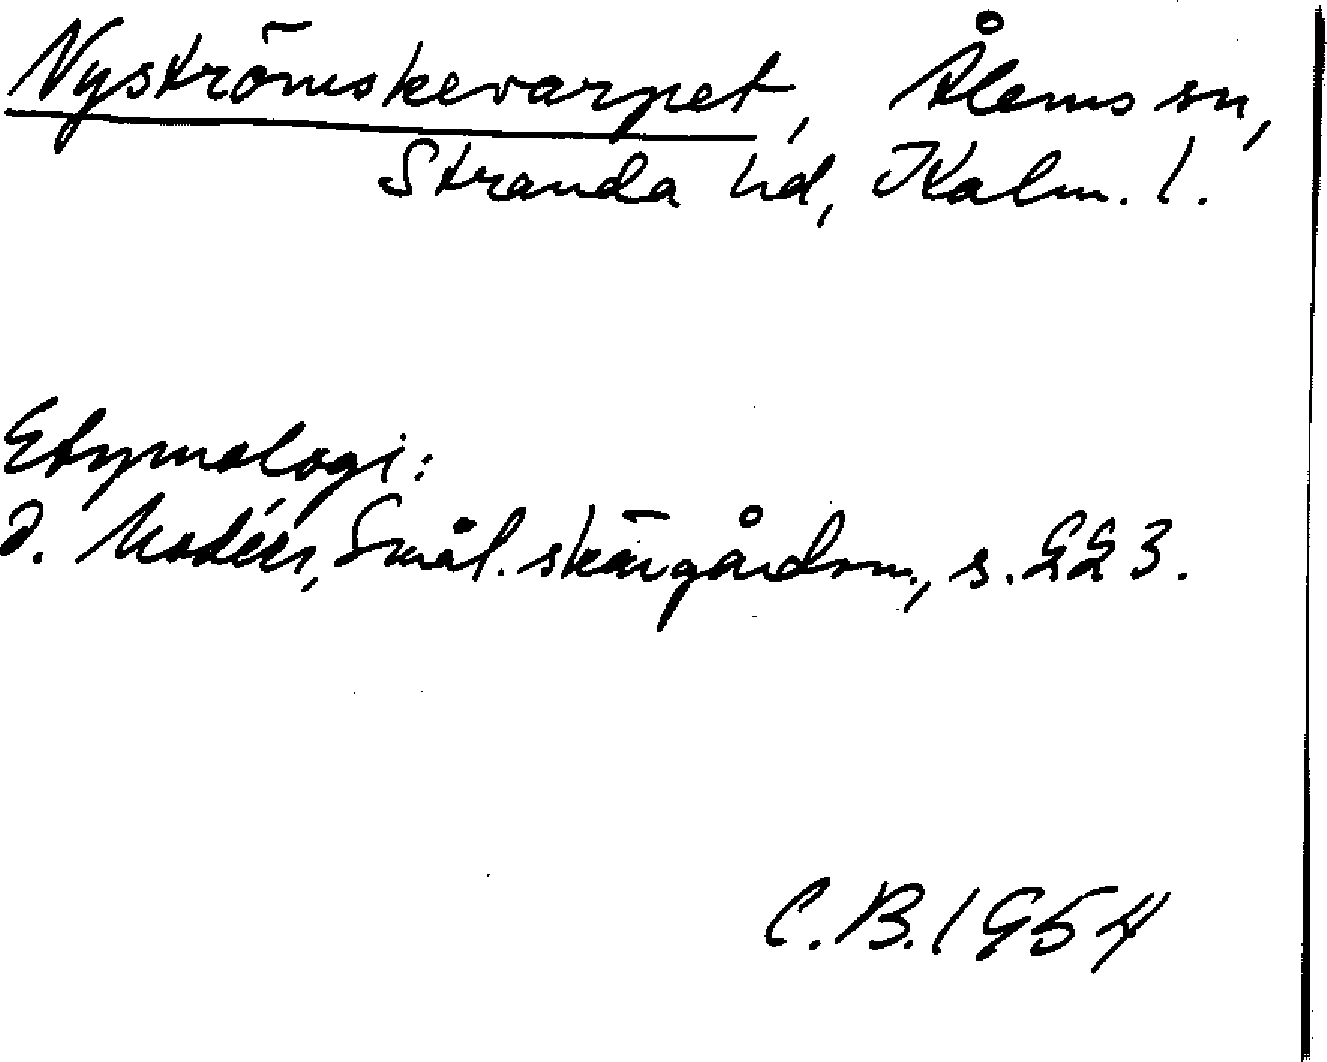 Nyströmskevarpet, Ålems sn,
Stranda hd, Kalm. l.
Etymologi:
J. Modéer, Smål. skärgårdsn., s. 223.
C.B. 1954